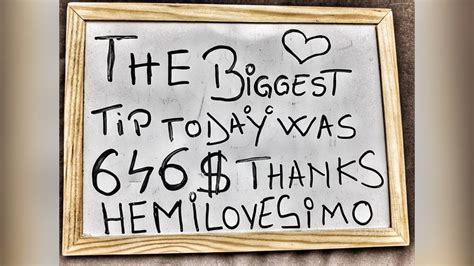 THE BIGGEST
TIP TODAY WAS
646$ THANKS
HEMILOVESIMO